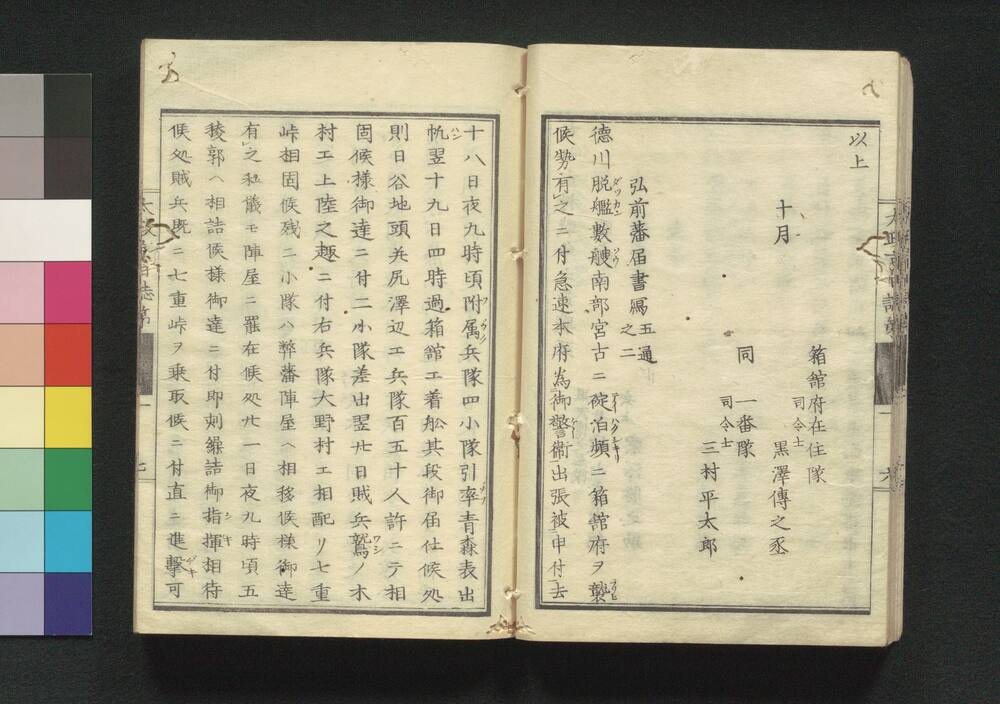 以上
箱館府在住隊
司令士
黒澤傳之丞
十月
同 一番隊
司令士
三村平太郎
弘前藩届書寫 五通之二
德川脱艦數艘南部宮古ニ碇泊頻ニ箱館府ヲ襲
候勢有之ニ付急速本府為御警衞出張被申付去
十八日夜九時頃附属兵隊四小隊引率青森表出
帆翌十九日四時過箱館エ着舩其段御届仕候処
則日谷地頭并尻澤辺エ兵隊百五十人許ニテ相
固候様御達ニ付二小隊差出翌廿日賊兵鷲ノ木
村エ上陸之趣ニ付右兵隊大野村エ相配リ七重
峠相固候残二小隊ハ弊藩陣屋ヘ相移候様御達
有之私儀モ陣屋ニ罷在候処廿一日夜九時頃五
稜郭ヘ相詰候様御達ニ付即刻繰詰御指揮相待
候処賊兵既ニ七重峠ヲ乗取候ニ付直ニ進擊可